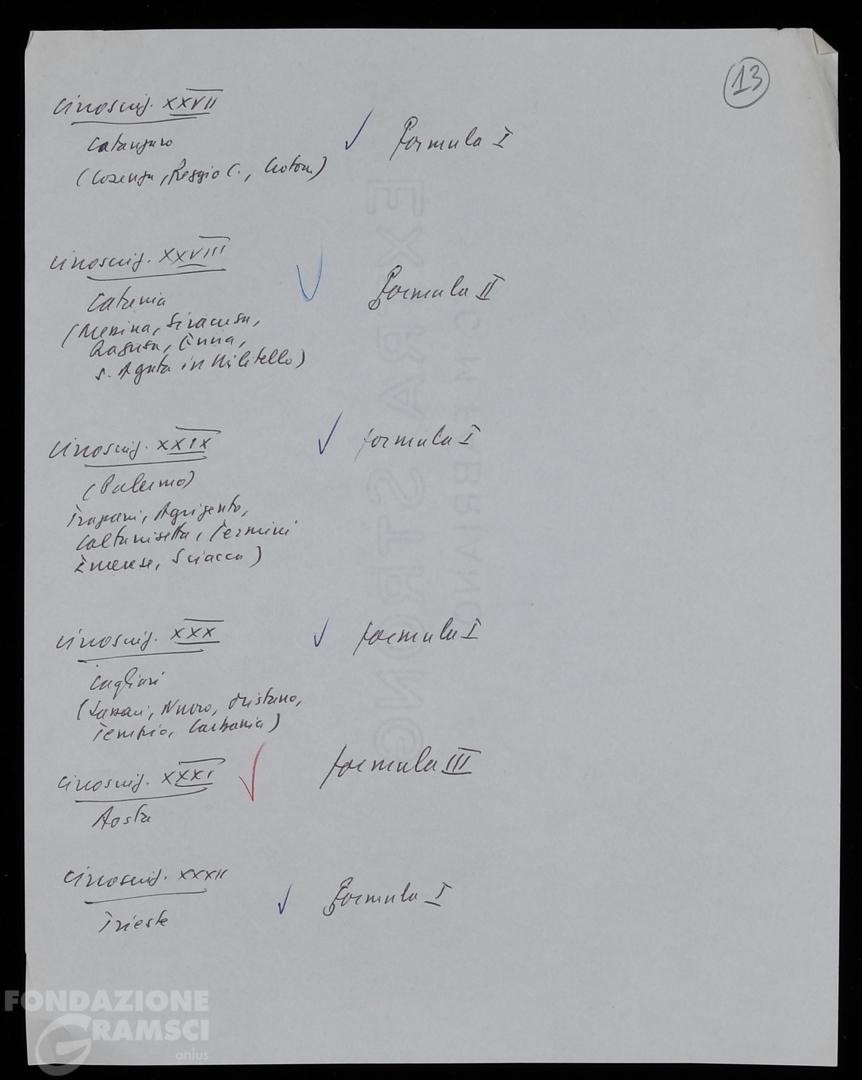 13
Circoscriz. XXVII
Catanzaro
(Cosenza, Reggio C., Crotone)
✓ Formula I
Circoscriz. XXVIII
Catania
(Messina, Siracusa,
Ragusa, Enna,
S. Agata in Militello)
✓ Formula II
Circoscriz. XXIX
(Palermo)
Trapani, Agrigento,
Caltanisetta, Termini
Imerese, Sciacca)
✓ formula I
Circoscriz. XXX
Cagliari
(Sassari, Nuoro, Oristano,
Tempio, Carbonia)
✓ formula I
Circoscriz. XXXI
Aosta
✓ formula III
Circoscriz. XXXII
Trieste
✓ Formula I
EXTRA STRONG
C.M. FABRIANO
FONDAZIONE
GRAMSCI
onlus